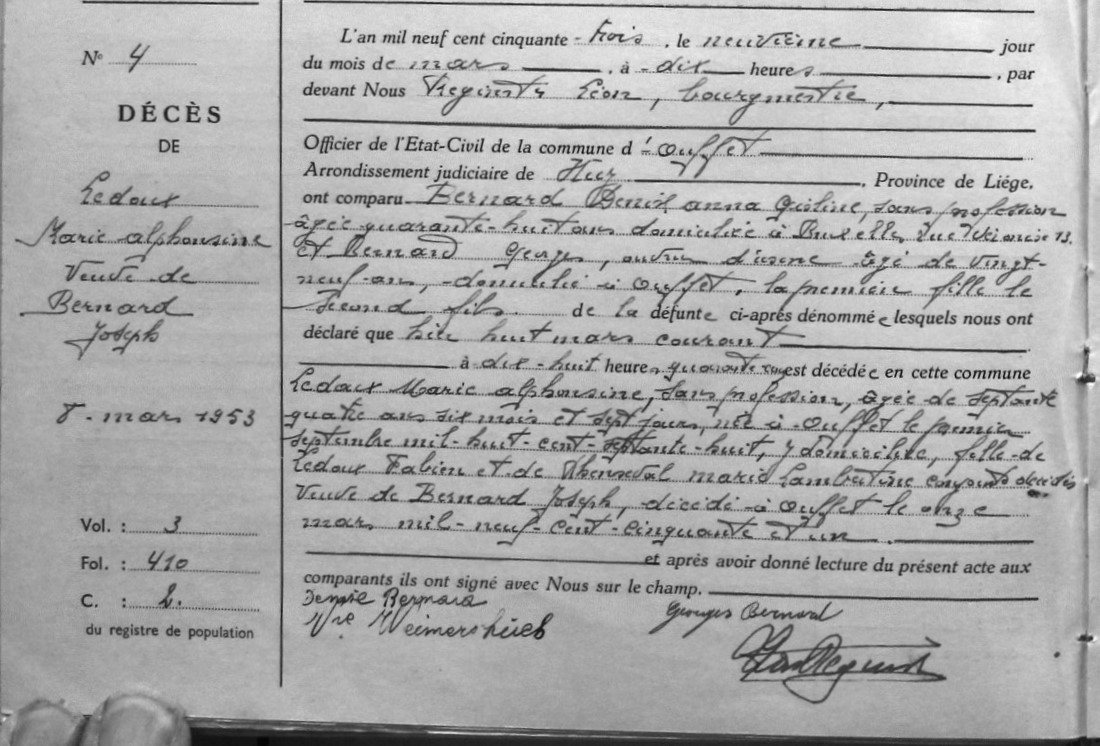 N° 4
DÉCÈS
DE
Ledoux
Marie alphonsine
Veuve de
Bernard
Joseph
8 - mars 1953
Vol. : 3
Fol. : 410
C. : 2.
du registre de population
L'an mil neuf cent cinquante - trois, le neuvième jour
du mois de mars, à - dix heures, par
devant Nous Léon, bourgmestre,
Officier de l'Etat-Civil de la commune d'Ouffet
Arrondissement judiciaire de Huy, Province de Liége,
ont comparu Bernard anna sans profession
âgée quarante-huit ans domiciliée à rue 13.
et Bernard Georges, d'usine âgé de vingt-
neuf ans, - domicilié à Ouffet, la première fille le
second fils de la défunte ci-après dénommée lesquels nous ont
déclaré que hier huit mars courant
à dix - huit heures quarante est décédée en cette commune
Ledoux Marie alphonsine, sans profession, âgée de septante
quatre ans six mois et sept jours, née à Ouffet le premier
septembre mil-huit-cent-septante-huit, y domiciliée, fille de
Ledoux Fabien et de marie Lambertine décédés
Veuve de Bernard Joseph, décédé à Ouffet le onze
mars mil-neuf-cent-cinquante et un.
et après avoir donné lecture du présent acte aux
comparants ils ont signé avec Nous sur le champ.
Bernard
Georges Bernard